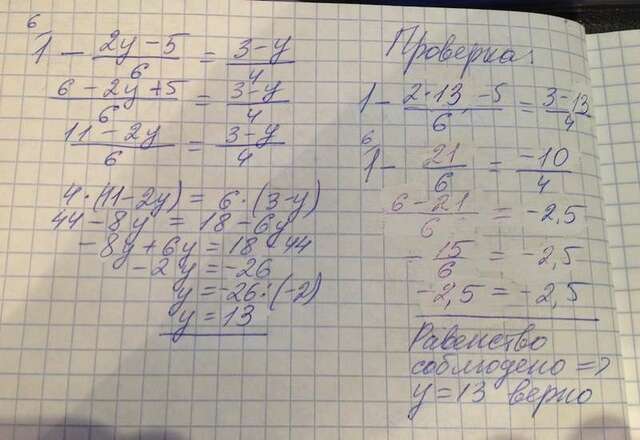 6
1 - (2y - 5)/6 = (3 - y)/4
(6 - 2y + 5)/6 = (3 - y)/4
(11 - 2y)/6 = (3 - y)/4
4·(11-2y) = 6·(3-y)
44 - 8y = 18 - 6y
-8y + 6y = 18 - 44
-2y = -26
y = -26:(-2)
y = 13
Проверка:
1 - (2·13 - 5)/6 = (3 - 13)/4
6
1 - 21/6 = -10/4
(6 - 21)/6 = -2,5
-15/6 = -2,5
-2,5 = -2,5
Равенство
соблюдено =>
y = 13 верно